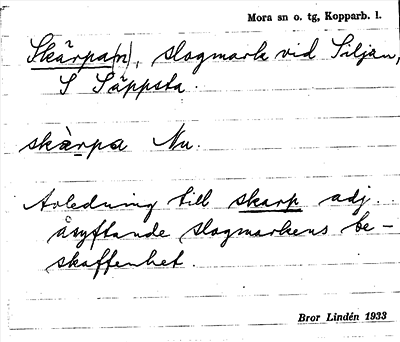 Mora sn o. tg, Kopparb. l.
Skärpa(n), slogmark vid Siljan,
S Säppsta.
skàrpa Nu.
Avledning till skarp adj.
åsyftande slogmarkens be-
skaffenhet.
Bror Lindén 1933